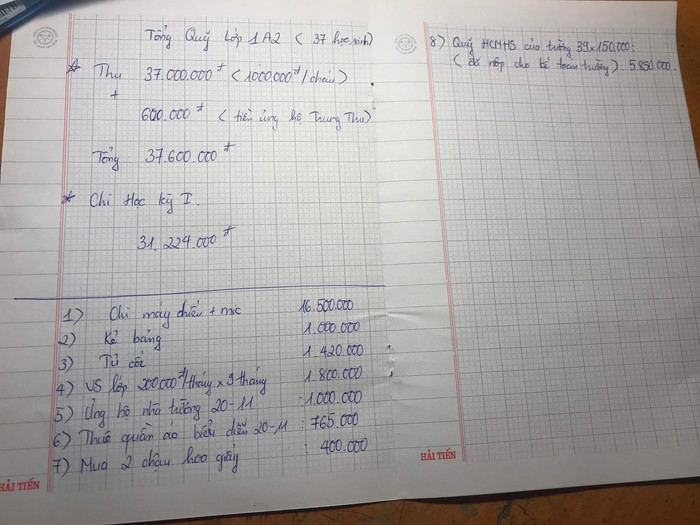 Tổng Quỹ Lớp 1A2 ( 37 học sinh)
* Thu 37.000.000đ ( 1000.000đ/cháu)
+
600.000đ ( tiền ủng hộ Trung Thu)
Tổng: 37.600.000đ
* Chi Học kỳ I.
31.224.000đ
1) Chi máy chiếu + mic 16.500.000
2) Kẻ bảng 1.000.000
3) Tủ cốc 1.420.000
4) VS lớp 200.000đ/tháng x 9 tháng 1.800.000
5) Ủng hộ nhà trường 20-11 1.000.000
6) Thuê quần áo biểu diễn 20-11 : 765.000
7) Mua 2 chậu hoa giấy : 400.000
HẢI TIẾN
8) Quỹ HCMHS của trường 39x150.000:
( đã nộp cho kế toán trường). 5.850.000
HẢI TIẾN